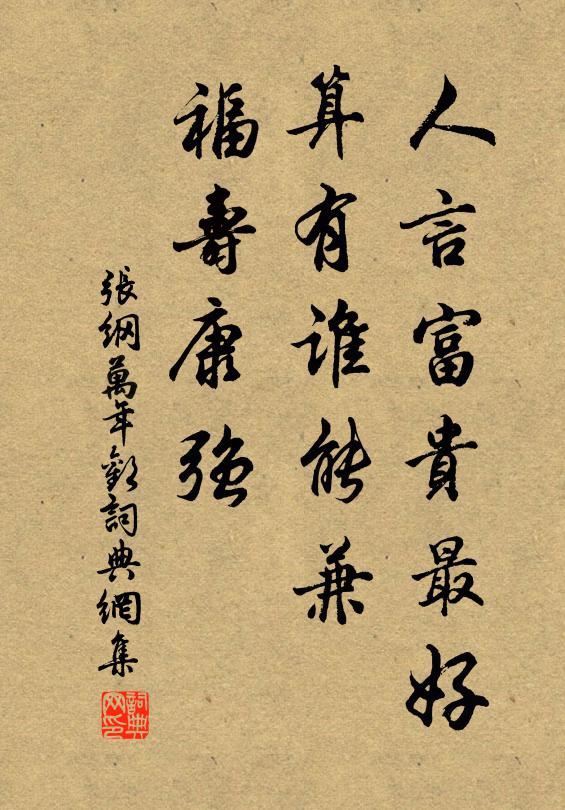 人言富貴最好
算有誰能兼
福壽康強
張綱萬年歡詞典網集
詞典
网印